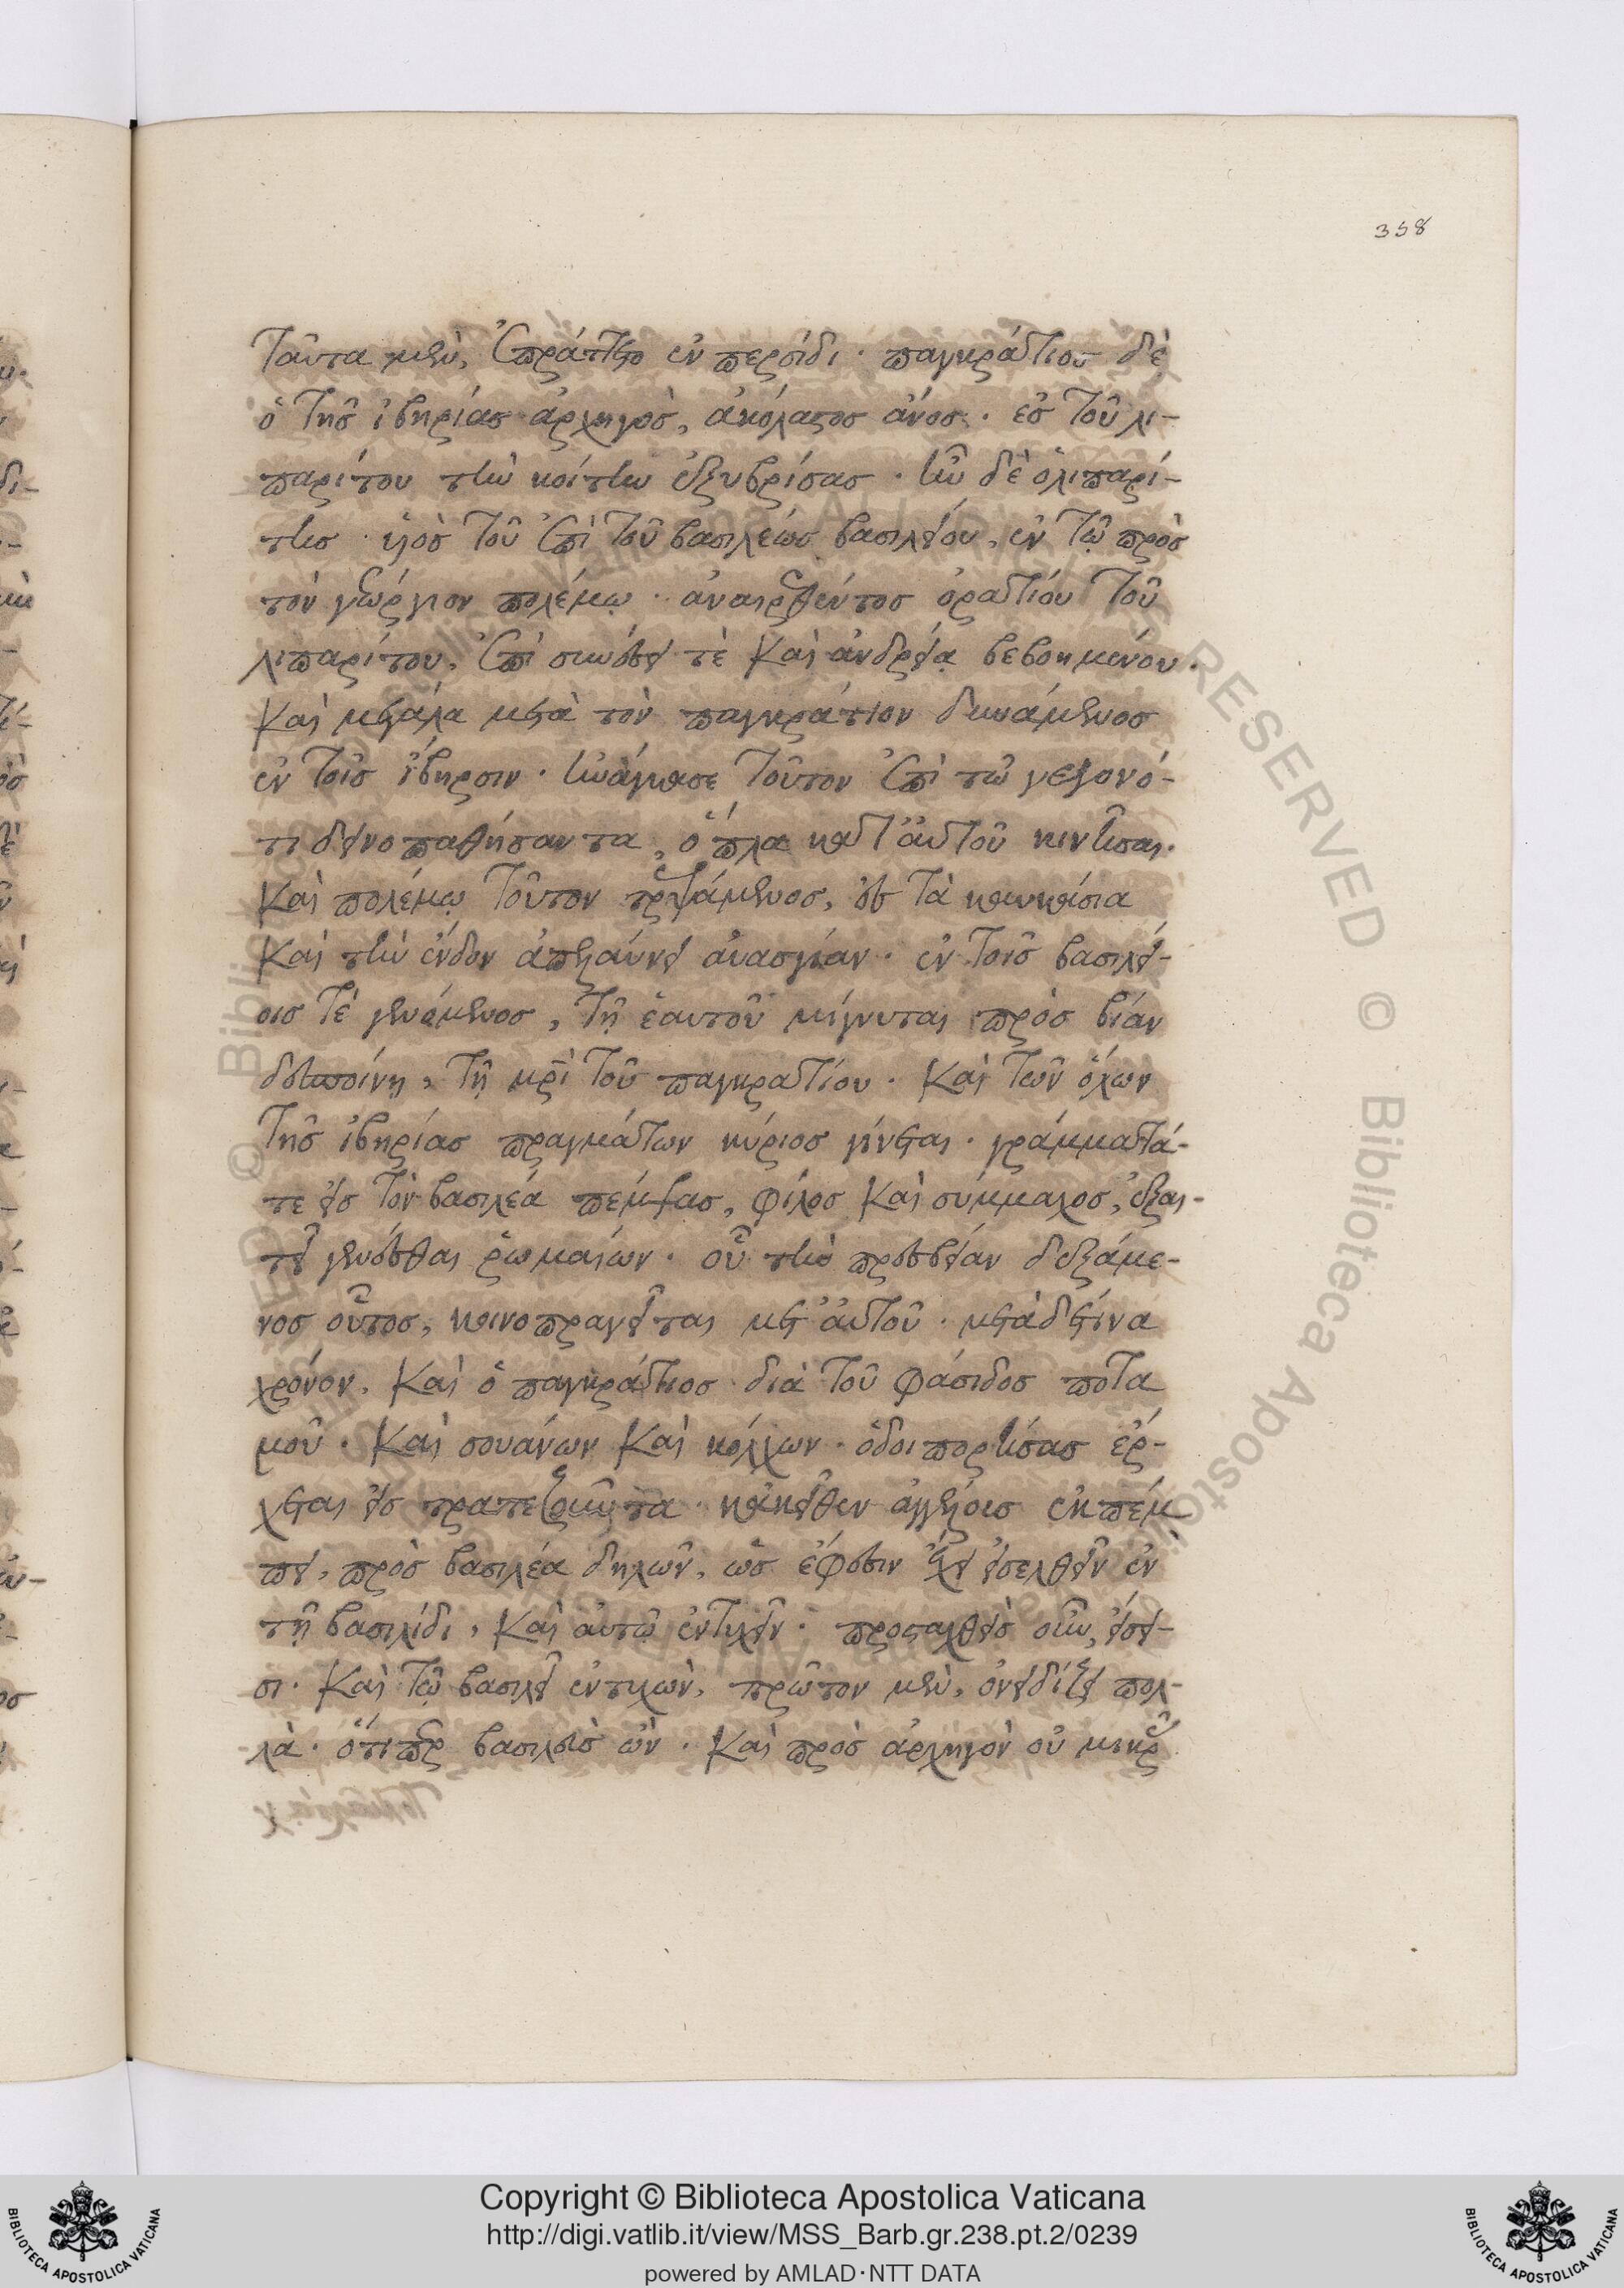 358
Ταῦτα μὲν, ἐπράττετο ἐν περσίδι · παγκράτιος δὲ
ὁ τῆς ἰβηρίας ἀρχηγὸς, ἀκόλαστος ἄνος · ἐς τοῦ λι-
παρίτου τὴν κοίτην ἐξυβρίσας · ἦν δὲ ὁ λιπαρί-
της · υἱὸς τοῦ ἐπὶ τοῦ βασιλέως βασιλείου, ἐν τῷ πρὸς
τὸν γεώργιον πολέμῳ · ἀναιρεθέντος ὁρατίου τοῦ
λιπαρίτου, ἐπὶ συνέσει τὲ καὶ ἀνδρείᾳ βεβοημένου.
καὶ μεγάλα μετὰ τὸν παγκράτιον δυνάμενος
ἐν τοῖς ἴβηρσιν · ἠνάγκασε τοῦτον ἐπὶ τῶ γεγονό-
τι δεινοπαθήσαντα, ὅπλα κατ' αὐτοῦ κινῆσαι.
καὶ πολέμῳ τοῦτον τρεψάμενος, ἐς τὰ καυκάσια
καὶ τὴν ἔνδον ἀπελαύνει ἀβασγίαν · ἐν τοῖς βασιλεί-
οις τέ γενόμενος, τῇ ἑαυτοῦ μίγνυται πρὸς βίαν
δεσποίνῃ, τῇ μρὶ τοῦ παγκρατίου · καὶ τῶν ὅλων
τῆς ἰβηρίας πραγμάτων κύριος γίνεται · γράμματά-
τε εἰς τὸν βασιλέα πέμψας, φίλος καὶ σύμμαχος, ἐξαι-
τεῖ γενέσθαι ῥωμαίων · οὗ τὴν πρεσβείαν δεξάμε-
νος οὗτος, κοινοπραγεῖται μετ' αὐτοῦ · μετὰ δέ τινα
χρόνον, καὶ ὁ παγκράτιος διὰ τοῦ φάσιδος ποτα
μοῦ · καὶ σουάνων καὶ κόλχων · ὁδοιπορήσας ἔρ-
χεται εἰς τραπεζοῦντα · κἀκεῖθεν ἀγγέλοις ἐκπέμ
πει, πρὸς βασιλέα δηλῶν, ὡς ἔφεσιν ἔχει εἰσελθεῖν ἐν
τῇ βασιλίδι, καὶ αὐτῷ ἐντυχεῖν · προσταχθεὶς οὖν, εἴσει-
σι · καὶ τῷ βασιλεῖ ἐντυχὼν, πρῶτον μὲν, ὀνειδίζει πολ-
λὰ · ὅτι περ βασιλεὺς ὢν · καὶ πρὸς ἀρχηγὸν οὐ μικρᾶς
Copyright © Biblioteca Apostolica Vaticana
http://digi.vatlib.it/view/MSS_Barb.gr.238.pt.2/0239
powered by AMLAD·NTT DATA
BIBLIOTECA APOSTOLICA VATICANA
BIBLIOTECA APOSTOLICA VATICANA